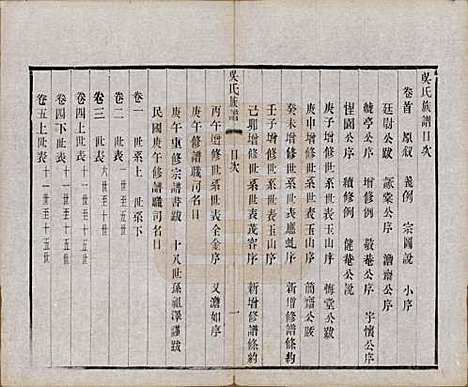 吳氏族譜目次
卷首 原叙 義例 宗圖說 小序
廷尉公跋 詠棠公序 澹齋公序
虢亭公序 增修例 毅菴公序 宇懷公序
惺園公序 續修例 健菴公說
庚子增修世系世表玉山序 悔堂公跋
庚申增修世系世表玉山序 簡齋公跋
癸未增修世系世表應虬序 新增修譜條約
壬子增修世系世表玉山序
己卯增修世系世表茂容序 新增修譜條約
吳氏族譜 目次 一
丙午增修世系世表全金序 又澹如序
庚午修譜職司名目
庚午重修宗譜書跋 十八世孫祖澤謹跋
民國庚午修譜職司名目
卷一 世系上 世系下
卷二 世表 一世至五世
卷三 世表 六世至十世
卷四上世表 十一世至十五世
卷四下世表 十一世至十五世
卷五上世表 十一世至十五世